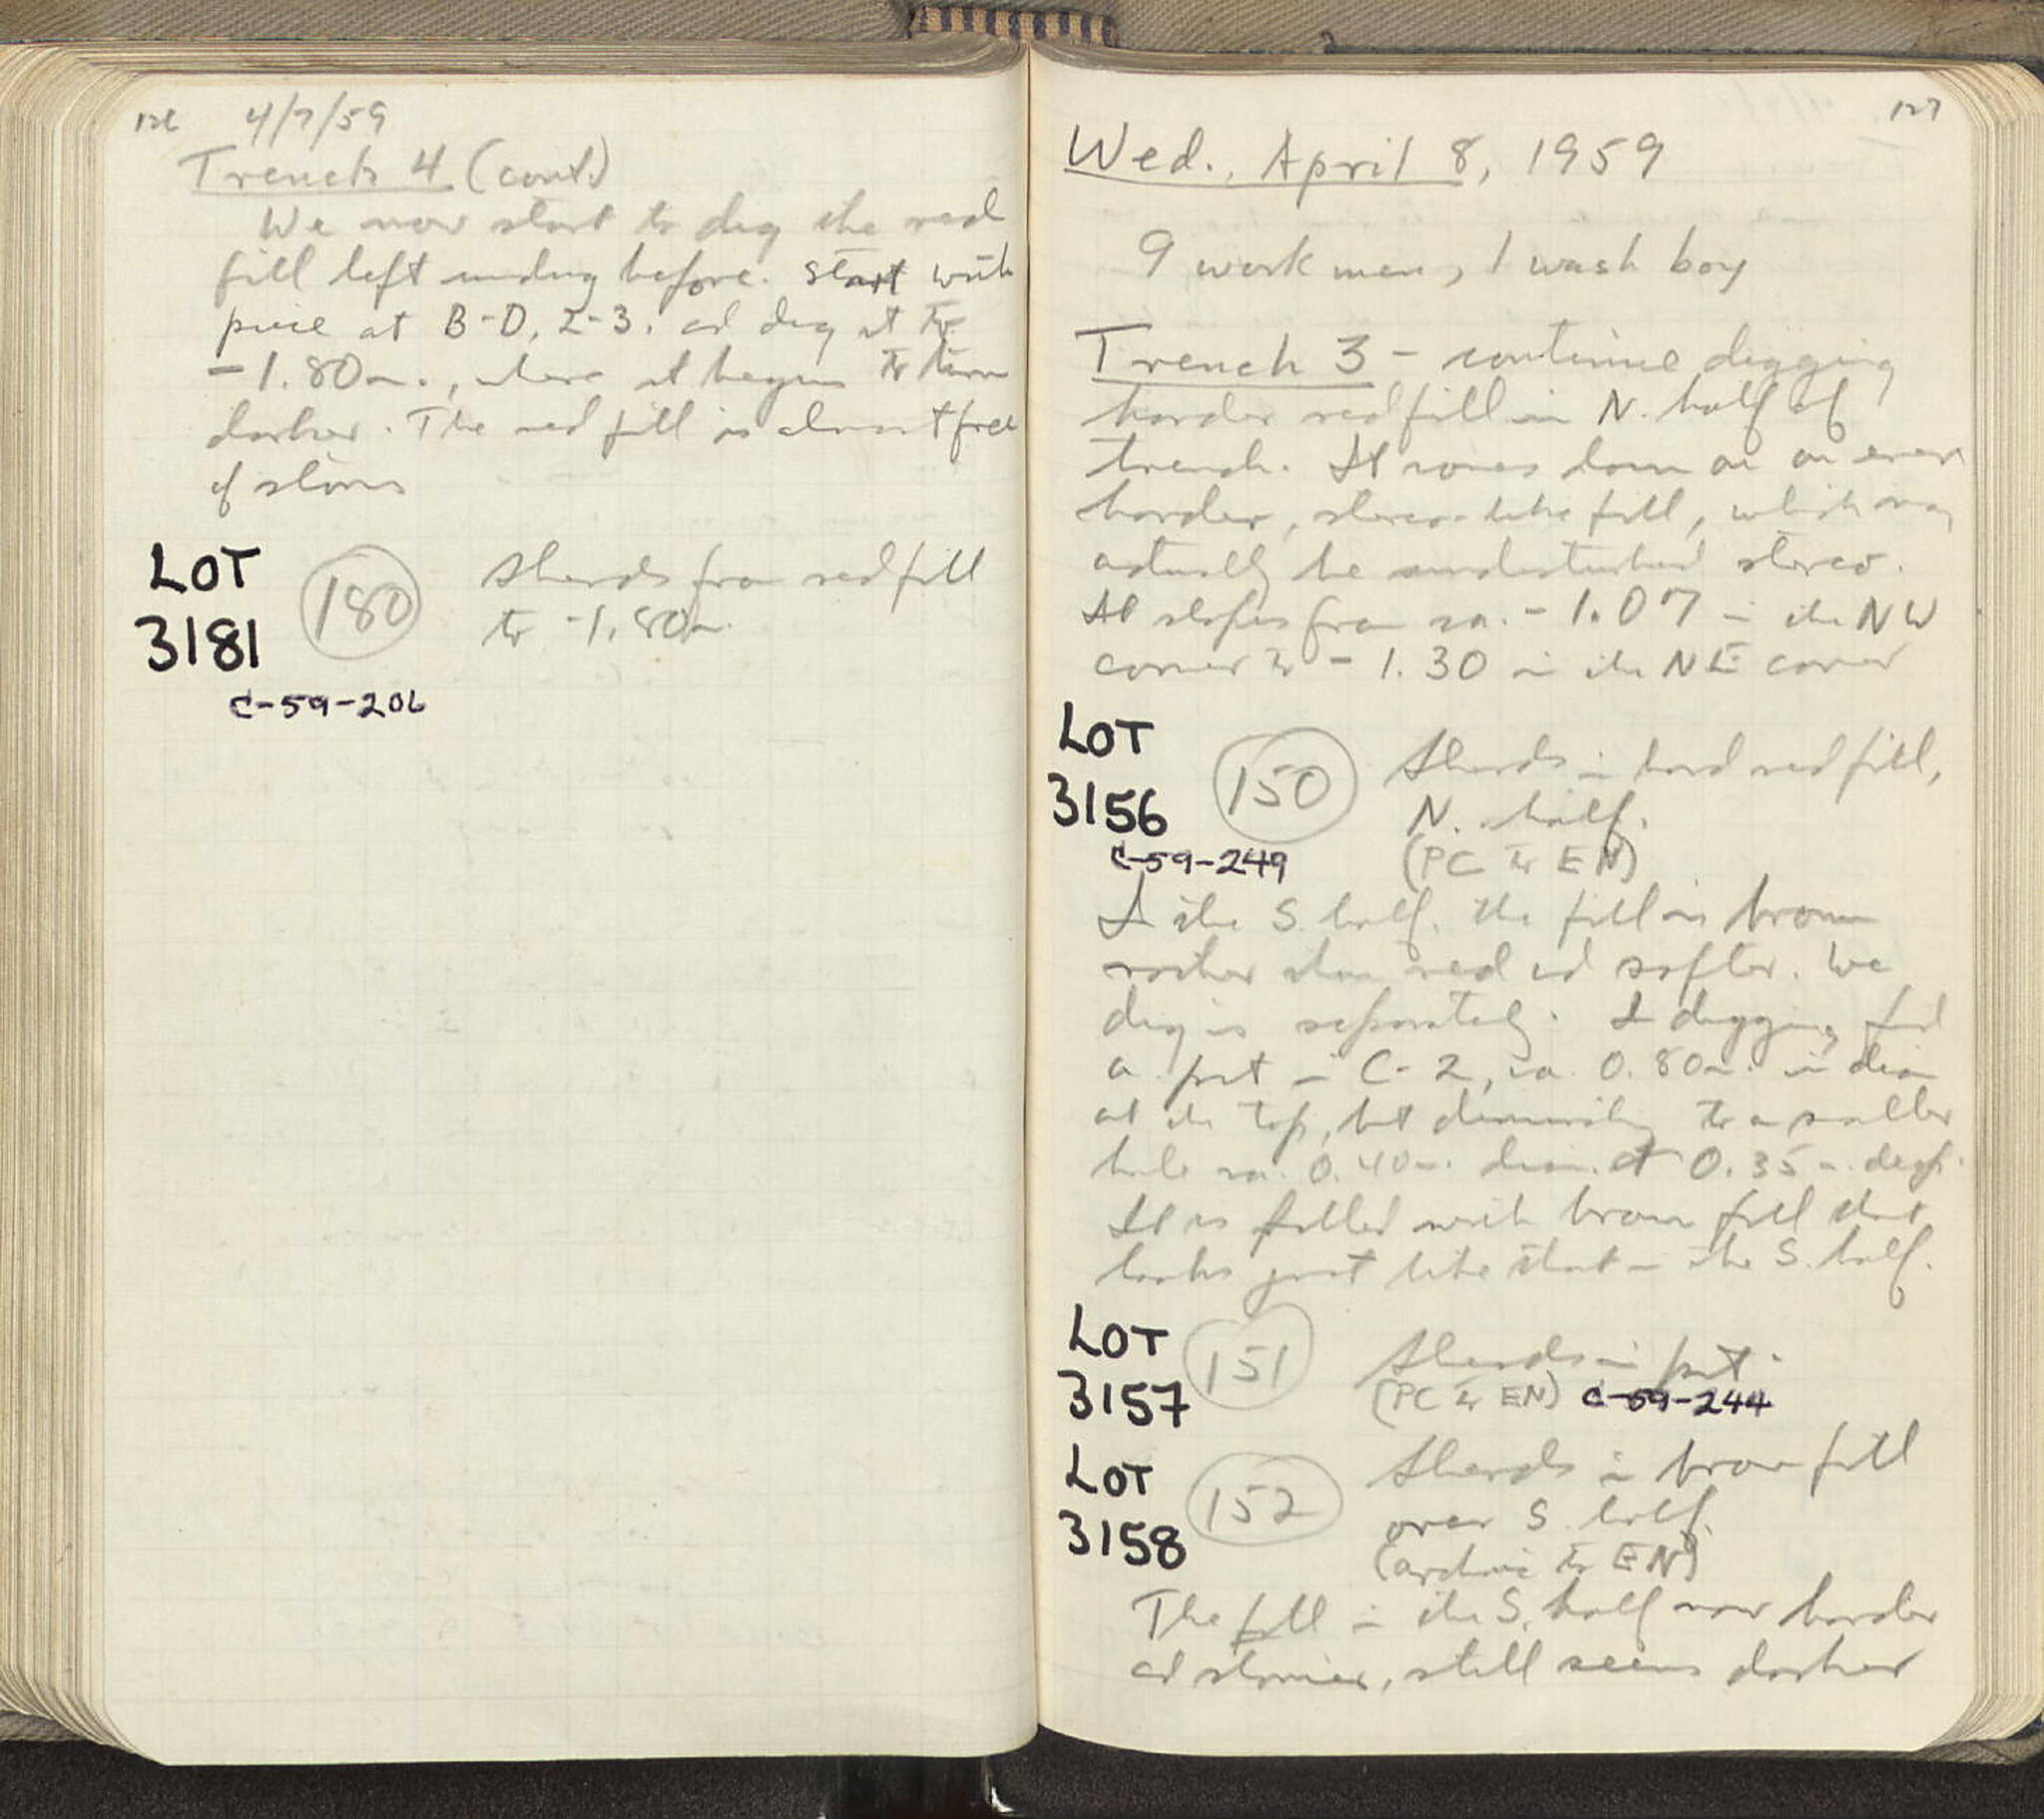 126 4/7/59
Trench 4 (cont.)
We now start to dig the red
fill left undug before. Start with
piece at B-D, 2-3. and dig it to
-1.80m., where it begins to turn
darker. The red fill is almost free
of stones
LOT
3181
180
Sherds from red fill
to -1.80m.
C-59-206
127
Wed., April 8, 1959
9 workmen, 1 wash boy
Trench 3 - continue digging
harder red fill in N. half of
trench. It comes down on an even
harder, stereo-like fill, which may
actually be undisturbed stereo.
It slopes from ca. -1.07 in the NW
corner to -1.30 in the NE corner
LOT
3156
150
Sherds in hard red fill,
N. half.
(PC to EN)
C-59-249
In the S. half, the fill is brown
rather than red and softer. We
dig is separately. In digging find
a pit in C-2, ca. 0.80m. in diam
at the top, but diminishing to a smaller
hole ca. 0.40m. diam. at 0.35m. deep.
It is filled with brown fill that
looks just like that in the S. half.
LOT
3157
151
Sherds in pit.
(PC to EN) C-59-244
LOT
3158
152
Sherds in brown fill
over S. half.
(archaic to EN)
The fill in the S. half now harder
and stonier, still seems darker